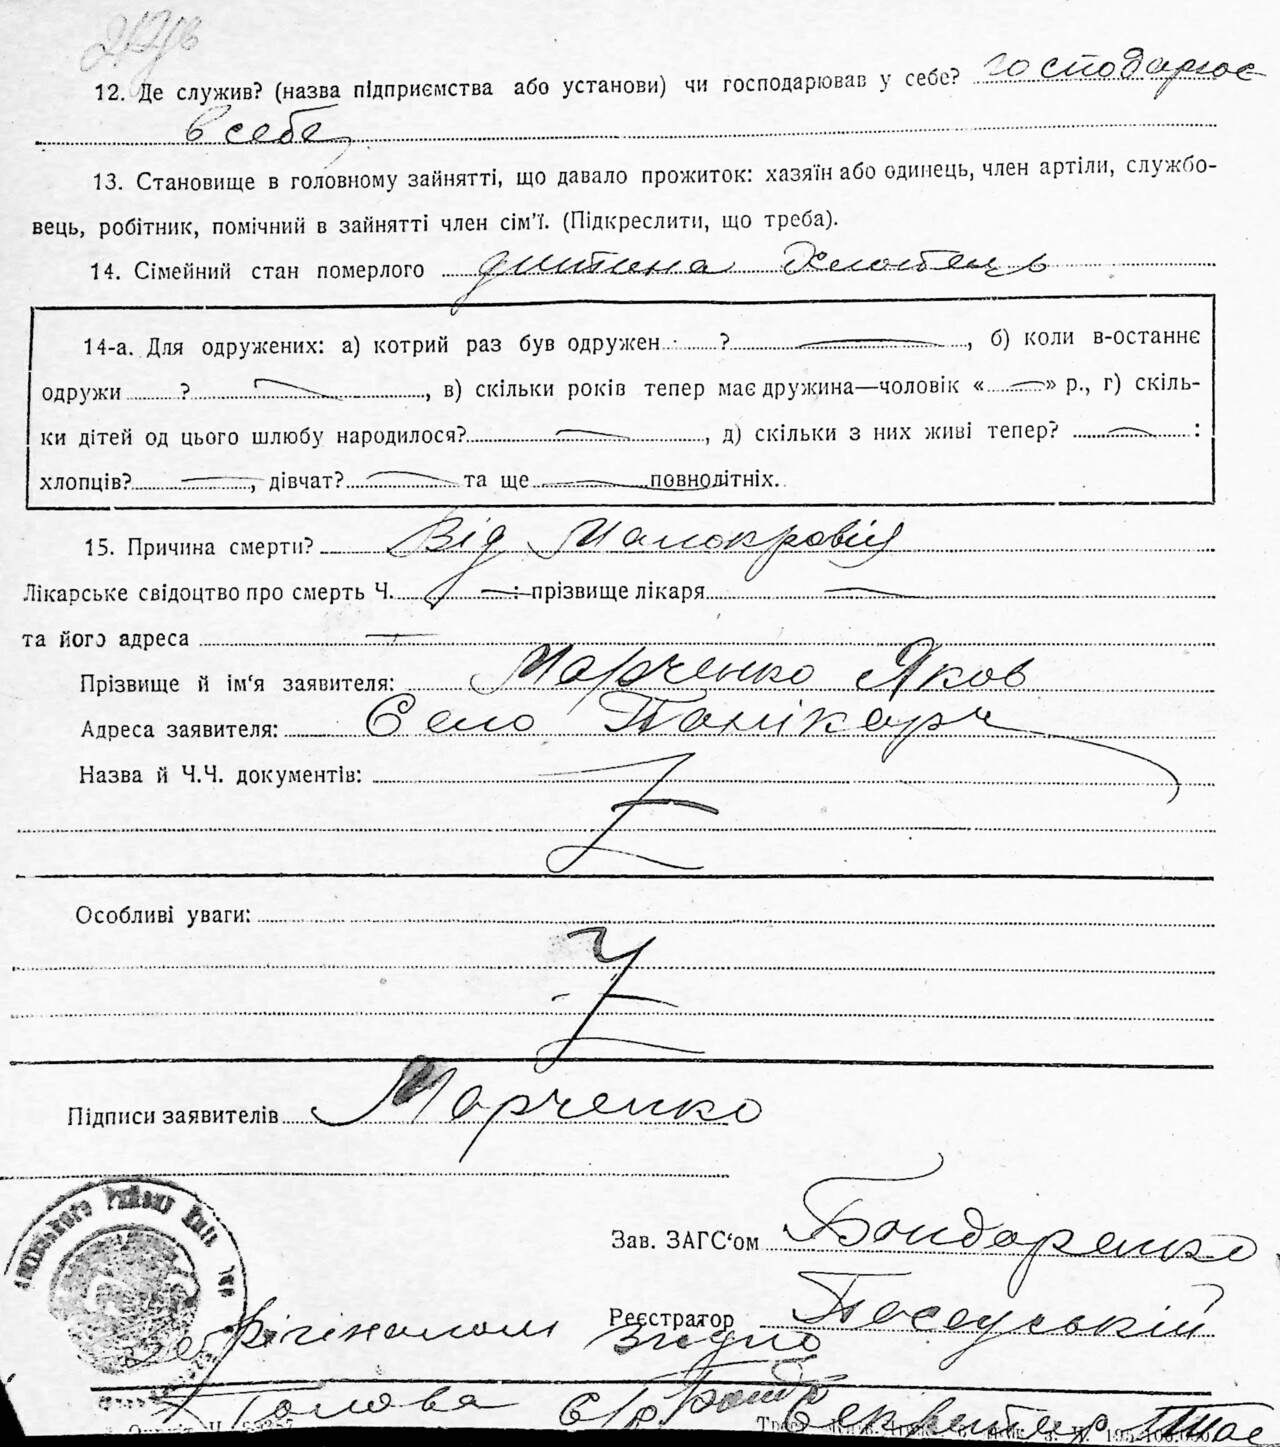 12. Де служив? (назва підприємства або установи) чи господарював у себе? господарює
в себе
13. Становище в головному зайнятті, що давало прожиток: хазяїн або одинець, член артіли, службо-
вець, робітник, помічний в зайнятті член сім'ї. (Підкреслити, що треба).
14. Сімейний стан померлого дитина Хлопець
14-а. Для одружених: а) котрий раз був одружен ?, б) коли в-останнє
одружи ?, в) скільки років тепер має дружина—чоловік « » р., г) скіль-
ки дітей од цього шлюбу народилося?, д) скільки з них живі тепер? :
хлопців?, дівчат? та ще повнолітніх.
15. Причина смерти? Від Малокровія
Лікарське свідоцтво про смерть Ч. : прізвище лікаря
та його адреса
Прізвище й ім'я заявителя: Марченко Яков
Адреса заявителя: Село Панікарч
Назва й Ч.Ч. документів:
Особливі уваги:
Підписи заявителів Марченко
Зав. ЗАГС'ом Бондаренко
Реєстратор
З орігіналом згідно
Голова с/р Секретар